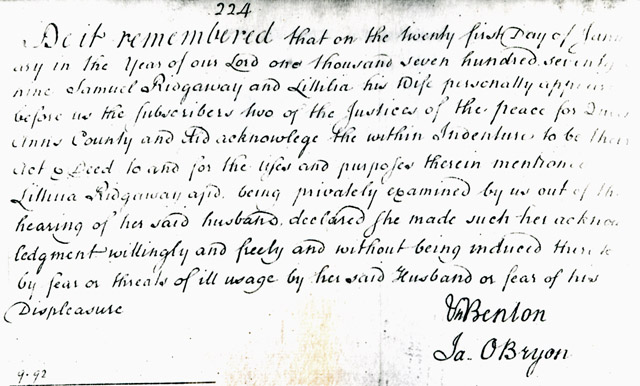 224
Be it remembered that on the twenty first Day of Janu
ary in the Year of our Lord one thousand seven hundred seventy
nine Samuel Ridgaway and Lillilia his Wife personally appear
before us the Subscribers two of the Justices of the peace for Queen
Anns County and Did acknowlege the within Indenture to be their
Act & Deed to and for the uses and purposes therein mentione
Ridgaway afsd. being privately examined by us out of the
hearing of her said husband declared She made such her acknow
ledgment willingly and freely and without being induced there to
by fear or threats of ill usage by her said Husband or fear of his
Displeasure
Vn Benton
Ja- O Bryon
9-92